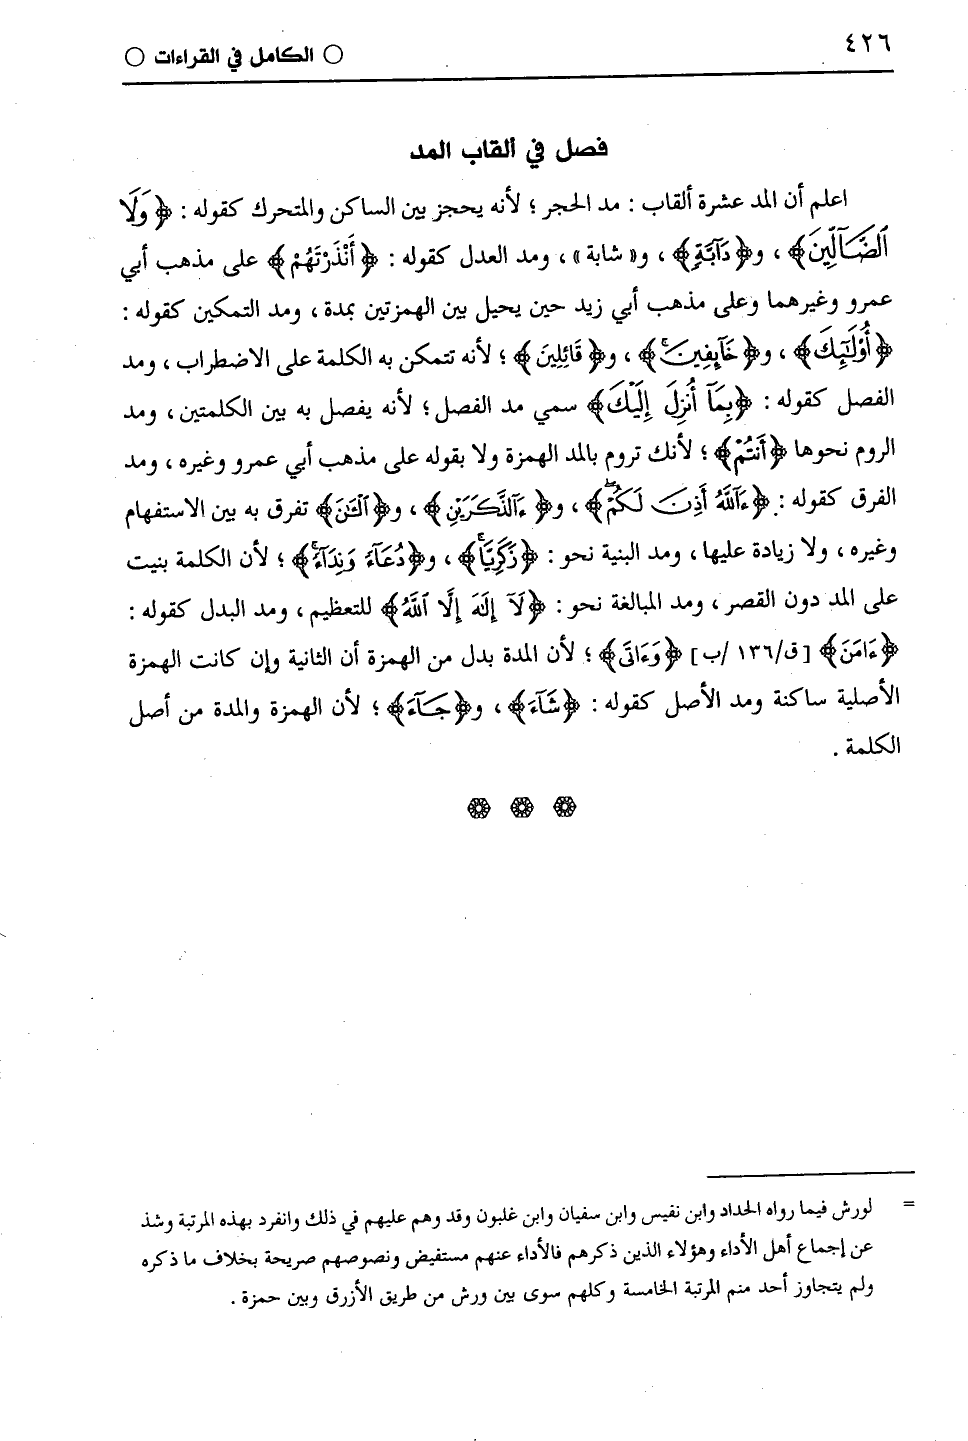 ٤٢٦
○ الكامل في القراءات ○
فصل في ألقاب المد
اعلم أن المد عشرة ألقاب : مد الحجر ؛ لأنه يحجز بين الساكن والمتحرك كقوله : ﴿ وَلَا
ٱلضَّآلِّينَ﴾ ، و﴿دَآبَّةٍ﴾ ، و« شابة » ، ومد العدل كقوله : ﴿ أَنْذَرْتَهُمْ ﴾ على مذهب أبي
عمرو وغيرهما وعلى مذهب أبي زيد حين يحيل بين الهمزتين بمدة ، ومد التمكين كقوله :
﴿أُوْلَٰٓئِكَ﴾ ، و﴿خَآئِفِينَ﴾ ، و﴿ قَائِلِينَ ﴾ ؛ لأنه تتمكن به الكلمة على الاضطراب ، ومد
الفصل كقوله : ﴿بِمَآ أُنزِلَ إِلَيْكَ﴾ سمي مد الفصل ؛ لأنه يفصل به بين الكلمتين ، ومد
الروم نحوها ﴿أَنتُمْ﴾ ؛ لأنك تروم بالمد الهمزة ولا بقوله على مذهب أبي عمرو وغيره ، ومد
الفرق كقوله : ﴿ءَآللَّهُ أَذِنَ لَكُمْ﴾ ، و﴿ءَآلذَّكَرَيْنِ﴾ ، و﴿آلْـَٰٔنَ﴾ تفرق به بين الاستفهام
وغيره ، ولا زيادة عليها ، ومد البنية نحو : ﴿زَكَرِيَّآ﴾ ، و﴿دُعَآءً وَنِدَآءً﴾ ؛ لأن الكلمة بنيت
على المد دون القصر ، ومد المبالغة نحو : ﴿لَآ إِلَٰهَ إِلَّا ٱللَّهُ﴾ للتعظيم ، ومد البدل كقوله :
﴿ءَامَنَ﴾ [ق/١٣٦ /ب] ﴿وَءَاتَى﴾ ؛ لأن المدة بدل من الهمزة أن الثانية وإن كانت الهمزة
الأصلية ساكنة ومد الأصل كقوله : ﴿شَآءَ﴾ ، و﴿جَآءَ﴾ ؛ لأن الهمزة والمدة من أصل
الكلمة .
= لورش فيما رواه الحداد وابن نفيس وابن سفيان وابن غلبون وقد وهم عليهم في ذلك وانفرد بهذه المرتبة وشذ
عن إجماع أهل الأداء وهؤلاء الذين ذكرهم فالأداء عنهم مستفيض ونصوصهم صريحة بخلاف ما ذكره
ولم يتجاوز أحد منم المرتبة الخامسة وكلهم سوى بين ورش من طريق الأزرق وبين حمزة .